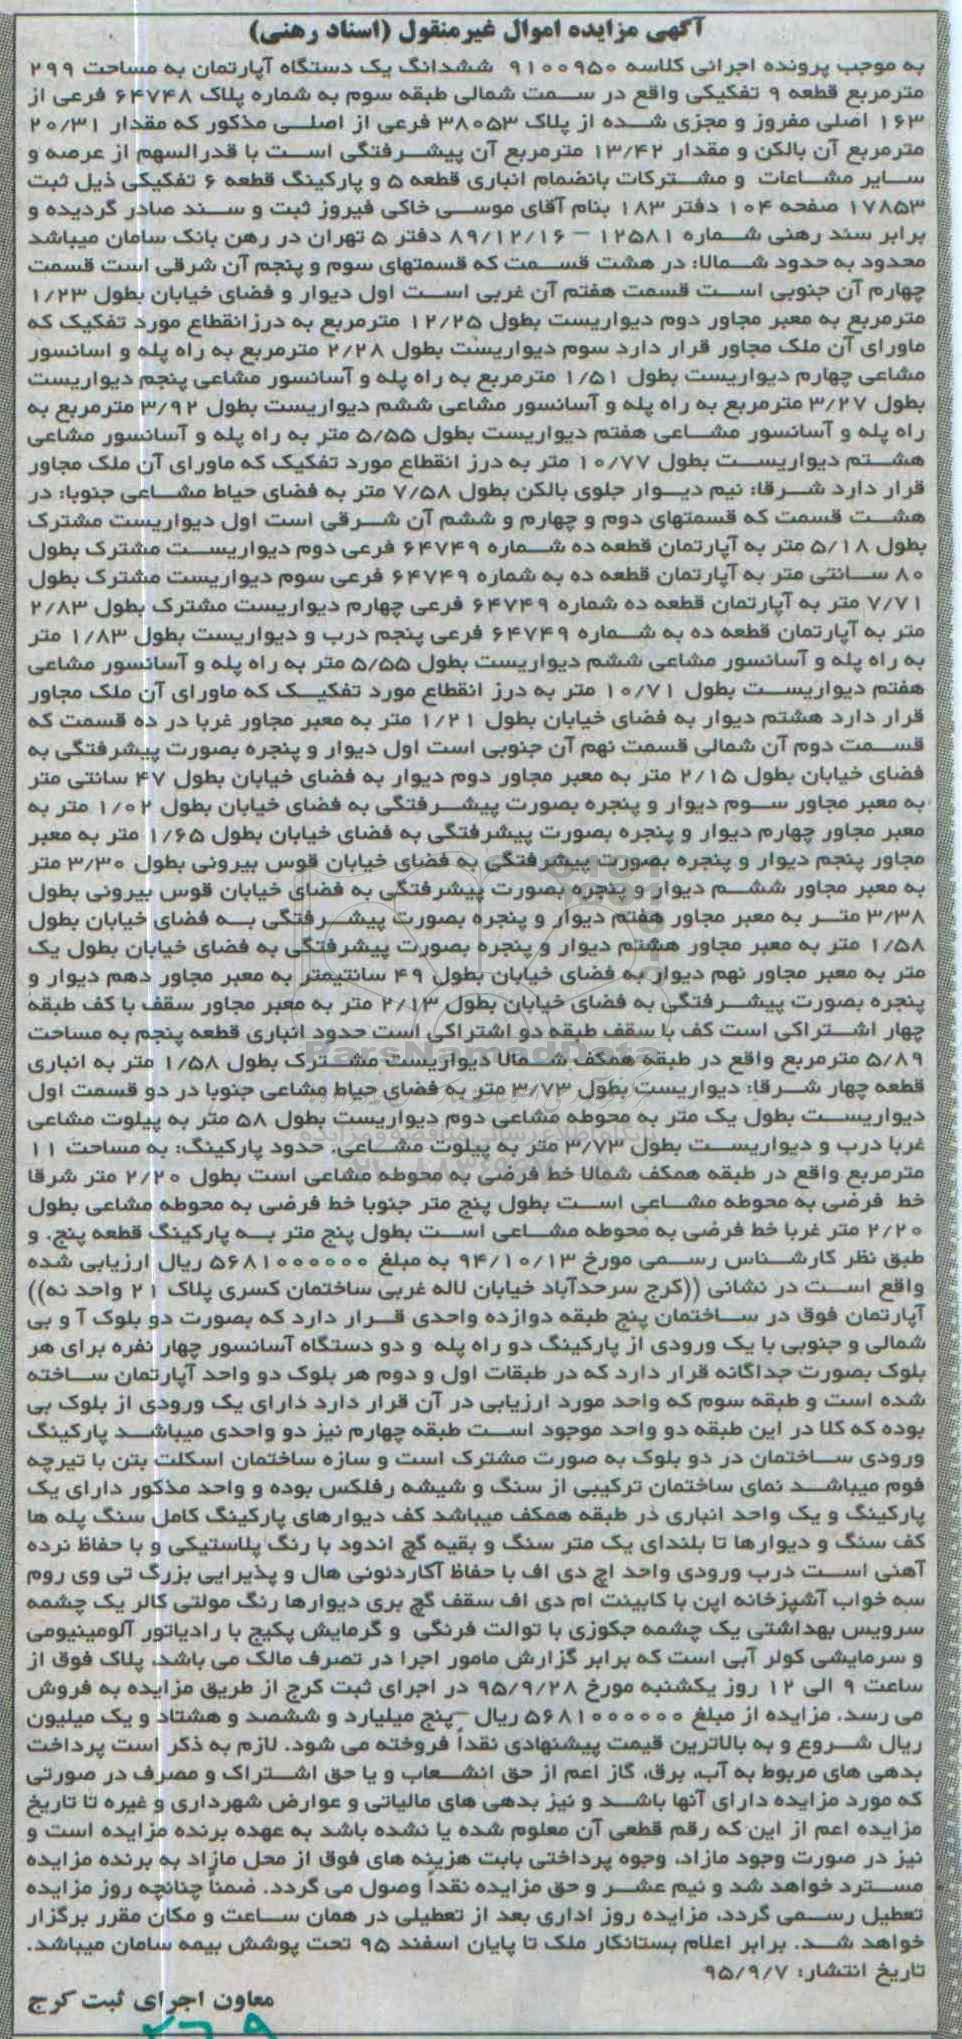 آگهی مزایده اموال غیرمنقول (اسناد رهنی)
به موجب پرونده اجرائی کلاسه ۹۱۰۰۹۵۰ ششدانگ یک دستگاه آپارتمان به مساحت ۲۹۹
مترمربع قطعه ۹ تفکیکی واقع در سمت شمالی طبقه سوم به شماره پلاک ۶۴۷۴۸ فرعی از
۱۶۳ اصلی مفروز و مجزی شده از پلاک ۳۸۰۵۳ فرعی از اصلی مذکور که مقدار ۲۰/۳۱
مترمربع آن بالکن و مقدار ۱۳/۴۲ مترمربع آن پیشرفتگی است با قدرالسهم از عرصه و
سایر مشاعات و مشترکات بانضمام انباری قطعه ۵ و پارکینگ قطعه ۶ تفکیکی ذیل ثبت
۱۷۸۵۳ صفحه ۱۰۴ دفتر ۱۸۳ بنام آقای موسی خاکی فیروز ثبت و سند صادر گردیده و
برابر سند رهنی شماره ۱۲۵۸۱ – ۸۹/۱۲/۱۶ دفتر ۵ تهران در رهن بانک سامان میباشد
محدود به حدود شمالا: در هشت قسمت که قسمتهای سوم و پنجم آن شرقی است قسمت
چهارم آن جنوبی است قسمت هفتم آن غربی است اول دیوار و فضای خیابان بطول ۱/۲۳
مترمربع به معبر مجاور دوم دیواریست بطول ۱۲/۲۵ مترمربع به درزانقطاع مورد تفکیک که
ماورای آن ملک مجاور قرار دارد سوم دیواریست بطول ۲/۲۸ مترمربع به راه پله و اسانسور
مشاعی چهارم دیواریست بطول ۱/۵۱ مترمربع به راه پله و آسانسور مشاعی پنجم دیواریست
بطول ۳/۲۷ مترمربع به راه پله و آسانسور مشاعی ششم دیواریست بطول ۳/۹۲ مترمربع به
راه پله و آسانسور مشاعی هفتم دیواریست بطول ۵/۵۵ متر به راه پله و آسانسور مشاعی
هشتم دیواریست بطول ۱۰/۷۷ متر به درز انقطاع مورد تفکیک که ماورای آن ملک مجاور
قرار دارد شرقا: نیم دیوار جلوی بالکن بطول ۷/۵۸ متر به فضای حیاط مشاعی جنوبا: در
هشت قسمت که قسمتهای دوم و چهارم و ششم آن شرقی است اول دیواریست مشترک
بطول ۵/۱۸ متر به آپارتمان قطعه ده شماره ۶۴۷۴۹ فرعی دوم دیواریست مشترک بطول
۸۰ سانتی متر به آپارتمان قطعه ده به شماره ۶۴۷۴۹ فرعی سوم دیواریست مشترک بطول
۷/۷۱ متر به آپارتمان قطعه ده شماره ۶۴۷۴۹ فرعی چهارم دیواریست مشترک بطول ۲/۸۳
متر به آپارتمان قطعه ده به شماره ۶۴۷۴۹ فرعی پنجم درب و دیواریست بطول ۱/۸۳ متر
به راه پله و آسانسور مشاعی ششم دیواریست بطول ۵/۵۵ متر به راه پله و آسانسور مشاعی
هفتم دیواریست بطول ۱۰/۷۱ متر به درز انقطاع مورد تفکیک که ماورای آن ملک مجاور
قرار دارد هشتم دیوار به فضای خیابان بطول ۱/۲۱ متر به معبر مجاور غربا در ده قسمت که
قسمت دوم آن شمالی قسمت نهم آن جنوبی است اول دیوار و پنجره بصورت پیشرفتگی به
فضای خیابان بطول ۲/۱۵ متر به معبر مجاور دوم دیوار به فضای خیابان بطول ۴۷ سانتی متر
به معبر مجاور سوم دیوار و پنجره بصورت پیشرفتگی به فضای خیابان بطول ۱/۰۲ متر به
معبر مجاور چهارم دیوار و پنجره بصورت پیشرفتگی به فضای خیابان بطول ۱/۶۵ متر به معبر
مجاور پنجم دیوار و پنجره بصورت پیشرفتگی به فضای خیابان قوس بیرونی بطول ۳/۳۰ متر
به معبر مجاور ششم دیوار و پنجره بصورت پیشرفتگی به فضای خیابان قوس بیرونی بطول
۳/۳۸ متر به معبر مجاور هفتم دیوار و پنجره بصورت پیشرفتگی به فضای خیابان بطول
۱/۵۸ متر به معبر مجاور هشتم دیوار و پنجره بصورت پیشرفتگی به فضای خیابان بطول یک
متر به معبر مجاور نهم دیوار به فضای خیابان بطول ۴۹ سانتیمتر به معبر مجاور دهم دیوار و
پنجره بصورت پیشرفتگی به فضای خیابان بطول ۲/۱۳ متر به معبر مجاور سقف با کف طبقه
چهار اشتراکی است کف با سقف طبقه دو اشتراکی است حدود انباری قطعه پنجم به مساحت
۵/۸۹ مترمربع واقع در طبقه همکف شمالا دیواریست مشترک بطول ۱/۵۸ متر به انباری
قطعه چهار شرقا: دیواریست بطول ۳/۷۳ متر به فضای حیاط مشاعی جنوبا در دو قسمت اول
دیواریست بطول یک متر به محوطه مشاعی دوم دیواریست بطول ۵۸ متر به پیلوت مشاعی
غربا درب و دیواریست بطول ۳/۷۳ متر به پیلوت مشاعی. حدود پارکینگ: به مساحت ۱۱
مترمربع واقع در طبقه همکف شمالا خط فرضی به محوطه مشاعی است بطول ۲/۲۰ متر شرقا
خط فرضی به محوطه مشاعی است بطول پنج متر جنوبا خط فرضی به محوطه مشاعی بطول
۲/۲۰ متر غربا خط فرضی به محوطه مشاعی است بطول پنج متر به پارکینگ قطعه پنج. و
طبق نظر کارشناس رسمی مورخ ۹۴/۱۰/۱۳ به مبلغ ۵۶۸۱۰۰۰۰۰۰ ریال ارزیابی شده
واقع است در نشانی ((کرج سرحدآباد خیابان لاله غربی ساختمان کسری پلاک ۲۱ واحد نه))
آپارتمان فوق در ساختمان پنج طبقه دوازده واحدی قرار دارد که بصورت دو بلوک آ و بی
شمالی و جنوبی با یک ورودی از پارکینگ دو راه پله و دو دستگاه آسانسور چهار نفره برای هر
بلوک بصورت جداگانه قرار دارد که در طبقات اول و دوم هر بلوک دو واحد آپارتمان ساخته
شده است و طبقه سوم که واحد مورد ارزیابی در آن قرار دارد دارای یک ورودی از بلوک بی
بوده که کلا در این طبقه دو واحد موجود است طبقه چهارم نیز دو واحدی میباشد پارکینگ
ورودی ساختمان در دو بلوک به صورت مشترک است و سازه ساختمان اسکلت بتن با تیرچه
فوم میباشد نمای ساختمان ترکیبی از سنگ و شیشه رفلکس بوده و واحد مذکور دارای یک
پارکینگ و یک واحد انباری در طبقه همکف میباشد کف دیوارهای پارکینگ کامل سنگ پله ها
کف سنگ و دیوارها تا بلندای یک متر سنگ و بقیه گچ اندود با رنگ پلاستیکی و با حفاظ نرده
آهنی است درب ورودی واحد اچ دی اف با حفاظ آکاردئونی هال و پذیرایی بزرگ تی وی روم
سه خواب آشپزخانه اپن با کابینت ام دی اف سقف گچ بری دیوارها رنگ مولتی کالر یک چشمه
سرویس بهداشتی یک چشمه جکوزی با توالت فرنگی و گرمایش پکیج با رادیاتور آلومینیومی
و سرمایشی کولر آبی است که برابر گزارش مامور اجرا در تصرف مالک می باشد. پلاک فوق از
ساعت ۹ الی ۱۲ روز یکشنبه مورخ ۹۵/۹/۲۸ در اجرای ثبت کرج از طریق مزایده به فروش
می رسد. مزایده از مبلغ ۵۶۸۱۰۰۰۰۰۰ ریال –پنج میلیارد و ششصد و هشتاد و یک میلیون
ریال شروع و به بالاترین قیمت پیشنهادی نقداً فروخته می شود. لازم به ذکر است پرداخت
بدهی های مربوط به آب، برق، گاز اعم از حق انشعاب و یا حق اشتراک و مصرف در صورتی
که مورد مزایده دارای آنها باشد و نیز بدهی های مالیاتی و عوارض شهرداری و غیره تا تاریخ
مزایده اعم از این که رقم قطعی آن معلوم شده یا نشده باشد به عهده برنده مزایده است و
نیز در صورت وجود مازاد، وجوه پرداختی بابت هزینه های فوق از محل مازاد به برنده مزایده
مسترد خواهد شد و نیم عشر و حق مزایده نقداً وصول می گردد. ضمناً چنانچه روز مزایده
تعطیل رسمی گردد، مزایده روز اداری بعد از تعطیلی در همان ساعت و مکان مقرر برگزار
خواهد شد. برابر اعلام بستانکار ملک تا پایان اسفند ۹۵ تحت پوشش بیمه سامان میباشد.
تاریخ انتشار: ۹۵/۹/۷
معاون اجرای ثبت کرج
ParsNamadData